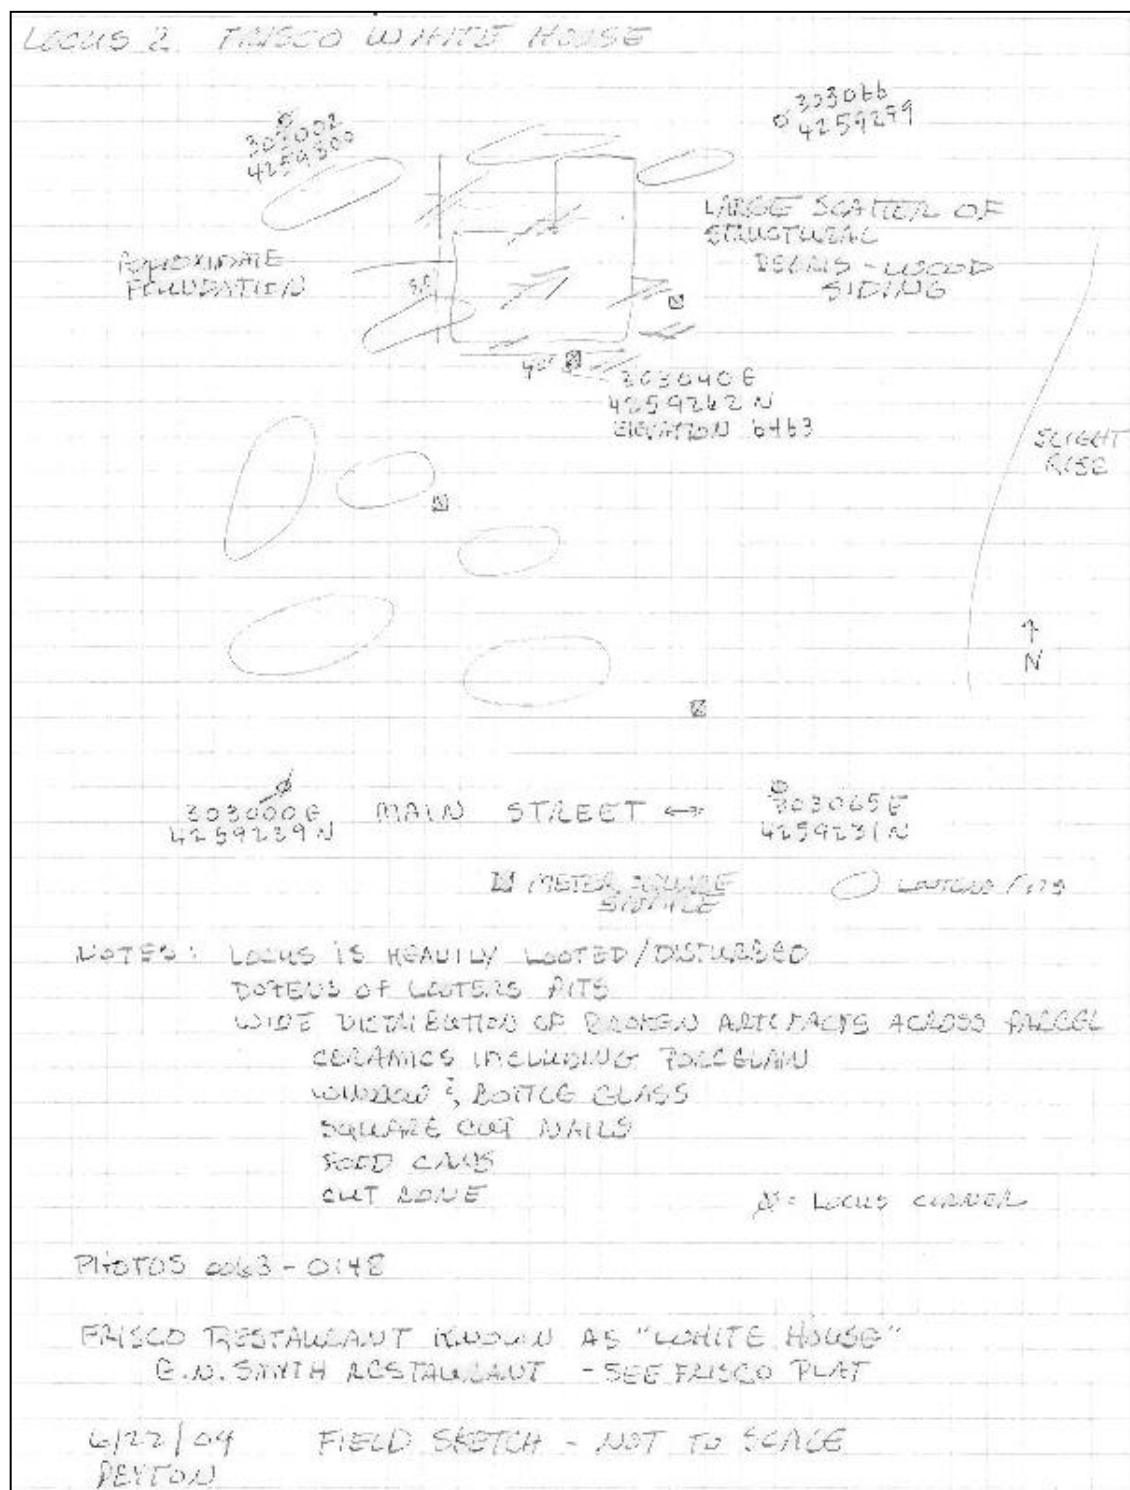 LOCUS 2 FRISCO WHITE HOUSE
303002
4259300
303066
4259299
LARGE SCATTER OF
STRUCTURAL
DEBRIS - WOOD
SIDING
APPROXIMATE
FOUNDATION
40'
303040 E
4259262 N
ELEVATION 6463
SLIGHT
RISE
↑
N
303000 E
4259239 N
MAIN STREET ↔
303065 E
4259231 N
METER SQUARE
SAMPLE
LOOTERS PITS
NOTES: LOCUS IS HEAVILY LOOTED/DISTURBED
DOZENS OF LOOTERS PITS
WIDE DISTRIBUTION OF BROKEN ARTIFACTS ACROSS PARCEL
CERAMICS INCLUDING PORCELAIN
WINDOW & BOTTLE GLASS
SQUARE CUT NAILS
FOOD CANS
CUT BONE
= LOCUS CORNER
PHOTOS 0063-0148
FRISCO RESTAURANT KNOWN AS "WHITE HOUSE"
SMYTH RESTAURANT - SEE FRISCO PLAT
6/22/09 FIELD SKETCH - NOT TO SCALE
PEYTON